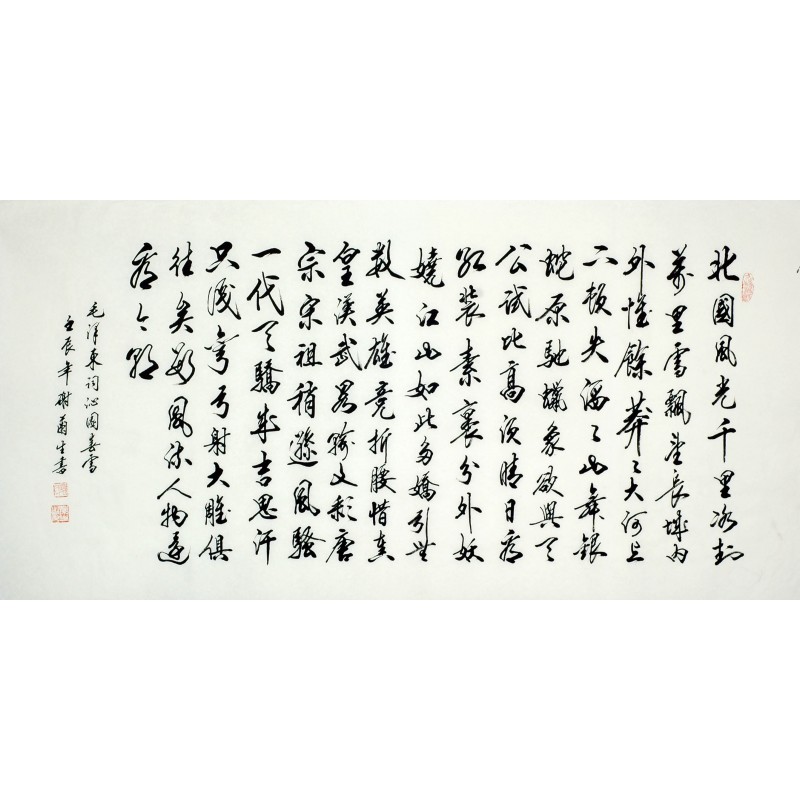 北國風光千里冰封
萬里雪飄望長城內
外惟餘莽〻大河上
下頓失滔〻山舞銀
蛇原馳蠟象欲與天
公試比高須晴日看
紅裝素裹分外妖
嬈江山如此多嬌引無
數英雄競折腰惜秦
皇漢武略輸文彩唐
宗宋祖稍遜風騷
一代天驕成吉思汗
只識彎弓射大雕俱
往矣數風流人物還
看今朝
毛澤東詞沁園春雪
壬辰年生書